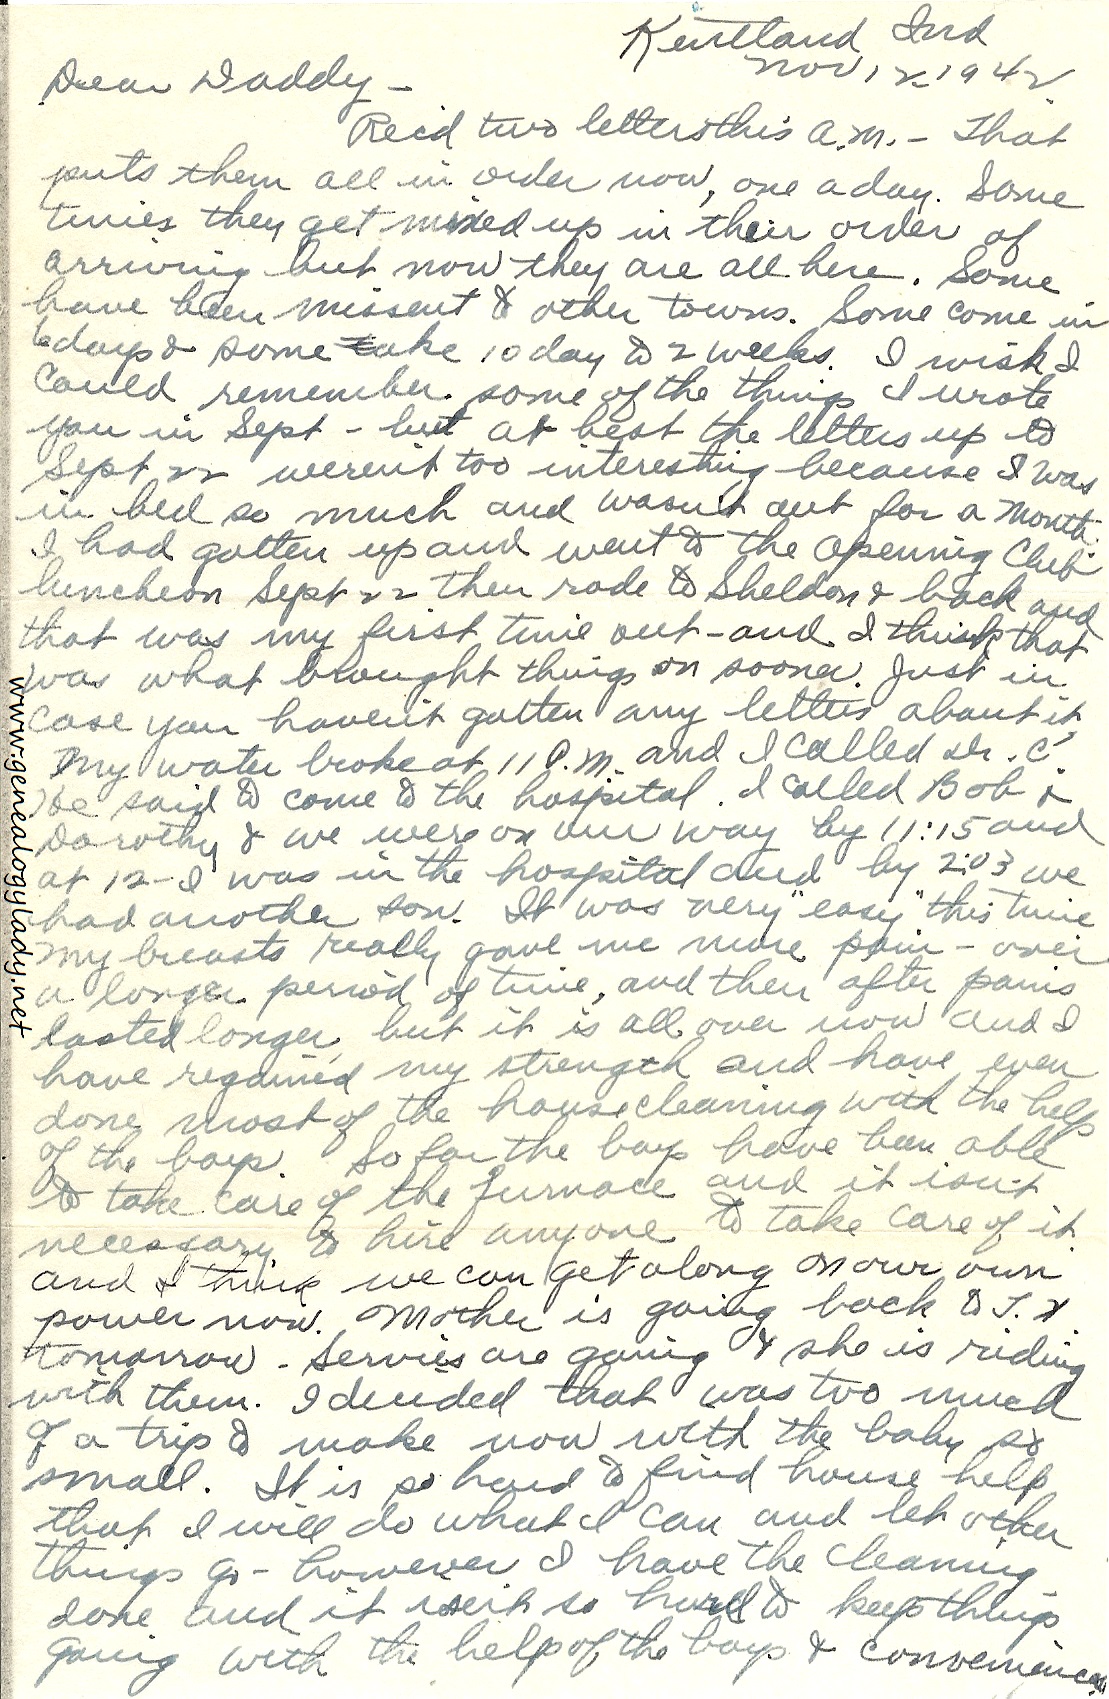 Kentland Ind
Nov 12 1942
Dear Daddy -
Rec'd two letters this a.m. - That
puts them all in order now, one a day. Some
times they get mixed up in their order of
arriving but now they are all here. Some
have been missent to other towns. Some come in
6 days & some take 10 day to 2 weeks. I wish I
could remember some of the things I wrote
you in Sept - but at best the letters up to
Sept 22 weren't too interesting because I was
in bed so much and wasn't out for a month.
I had gotten up and went to the opening Club
luncheon Sept 22 then rode to Sheldon & back and
that was my first time out - and I think that
was what brought things on sooner. Just in
case you haven't gotten any letters about it
My water broke at 11 P.M. and I called Dr. C.
He said to come to the hospital. I called Bob &
Dorothy & we were on our way by 11:15 and
at 12 - I was in the hospital and by 2:03 we
had another son. It was very "easy" this time
My breasts really gave me more pain - over
a longer period of time, and then after pains
lasted longer, but it is all over now and I
have regained my strength and have even
done most of the housecleaning with the help
of the boys. So far the boys have been able
to take care of the furnace and it isn't
necessary to hire anyone to take care of it
and I think we can get along on our own
power now. Mother is going back to T. H
tomorrow - Servies are going & she is riding
with them. I decided that was too much
of a trip to make now with the baby so
small. It is so hard to find house help
that I will do what I can and let other
things go - however I have the cleaning
done and it isn't so hard to keep things
going with the help of the boys & conveniences
www.genealogylady.net